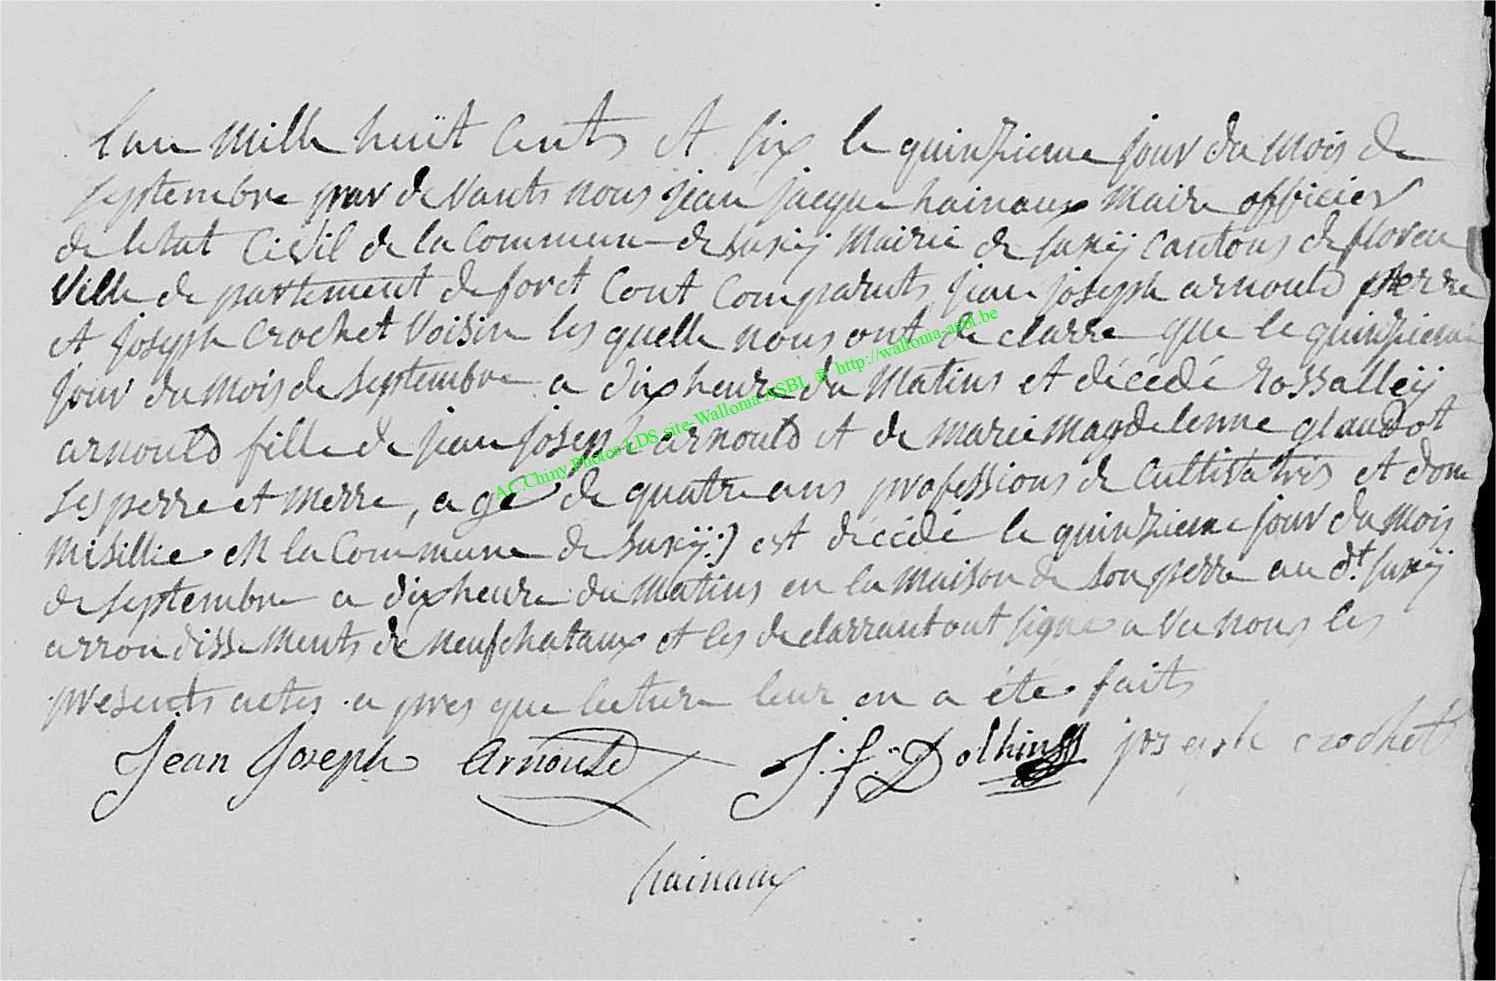 L'an mille huit cents et six le quinzieme jour du mois de
septembre par de vants nous jean jacque hainaux maire officier
de letat Civil de la Commune de Suxÿ Mairie de Suxÿ Cantons de floren
ville de partement de foret Cont Comparuts jean joseph arnould perre
et joseph Crochet voisin les quelle nous ont de clarre que le quinzieme
jour du mois de septembre a dix heure du Matins et décédé Rossalleÿ
arnould fille de jean joseph arnould et de marie magdelenne glaudot
ses perre et merre, agé de quatre ans professions de Cultivatris et dom
misillie en la Commune de Suxÿ:) est décédé le quinzieme jour du mois
de septembre a dix heure du Matins en la maison de son perre au dt. Suxÿ
arrondissements de neufchataux et les declarrant ont signe a vu nous les
presents actes a pres que lecture leur en a été faits
Jean Joseph Arnould J: f: Dolhings joseph crochet
hainaux
AC Chiny Photos LDS site Wallonia ASBL @ http://wallonia-asbl.be